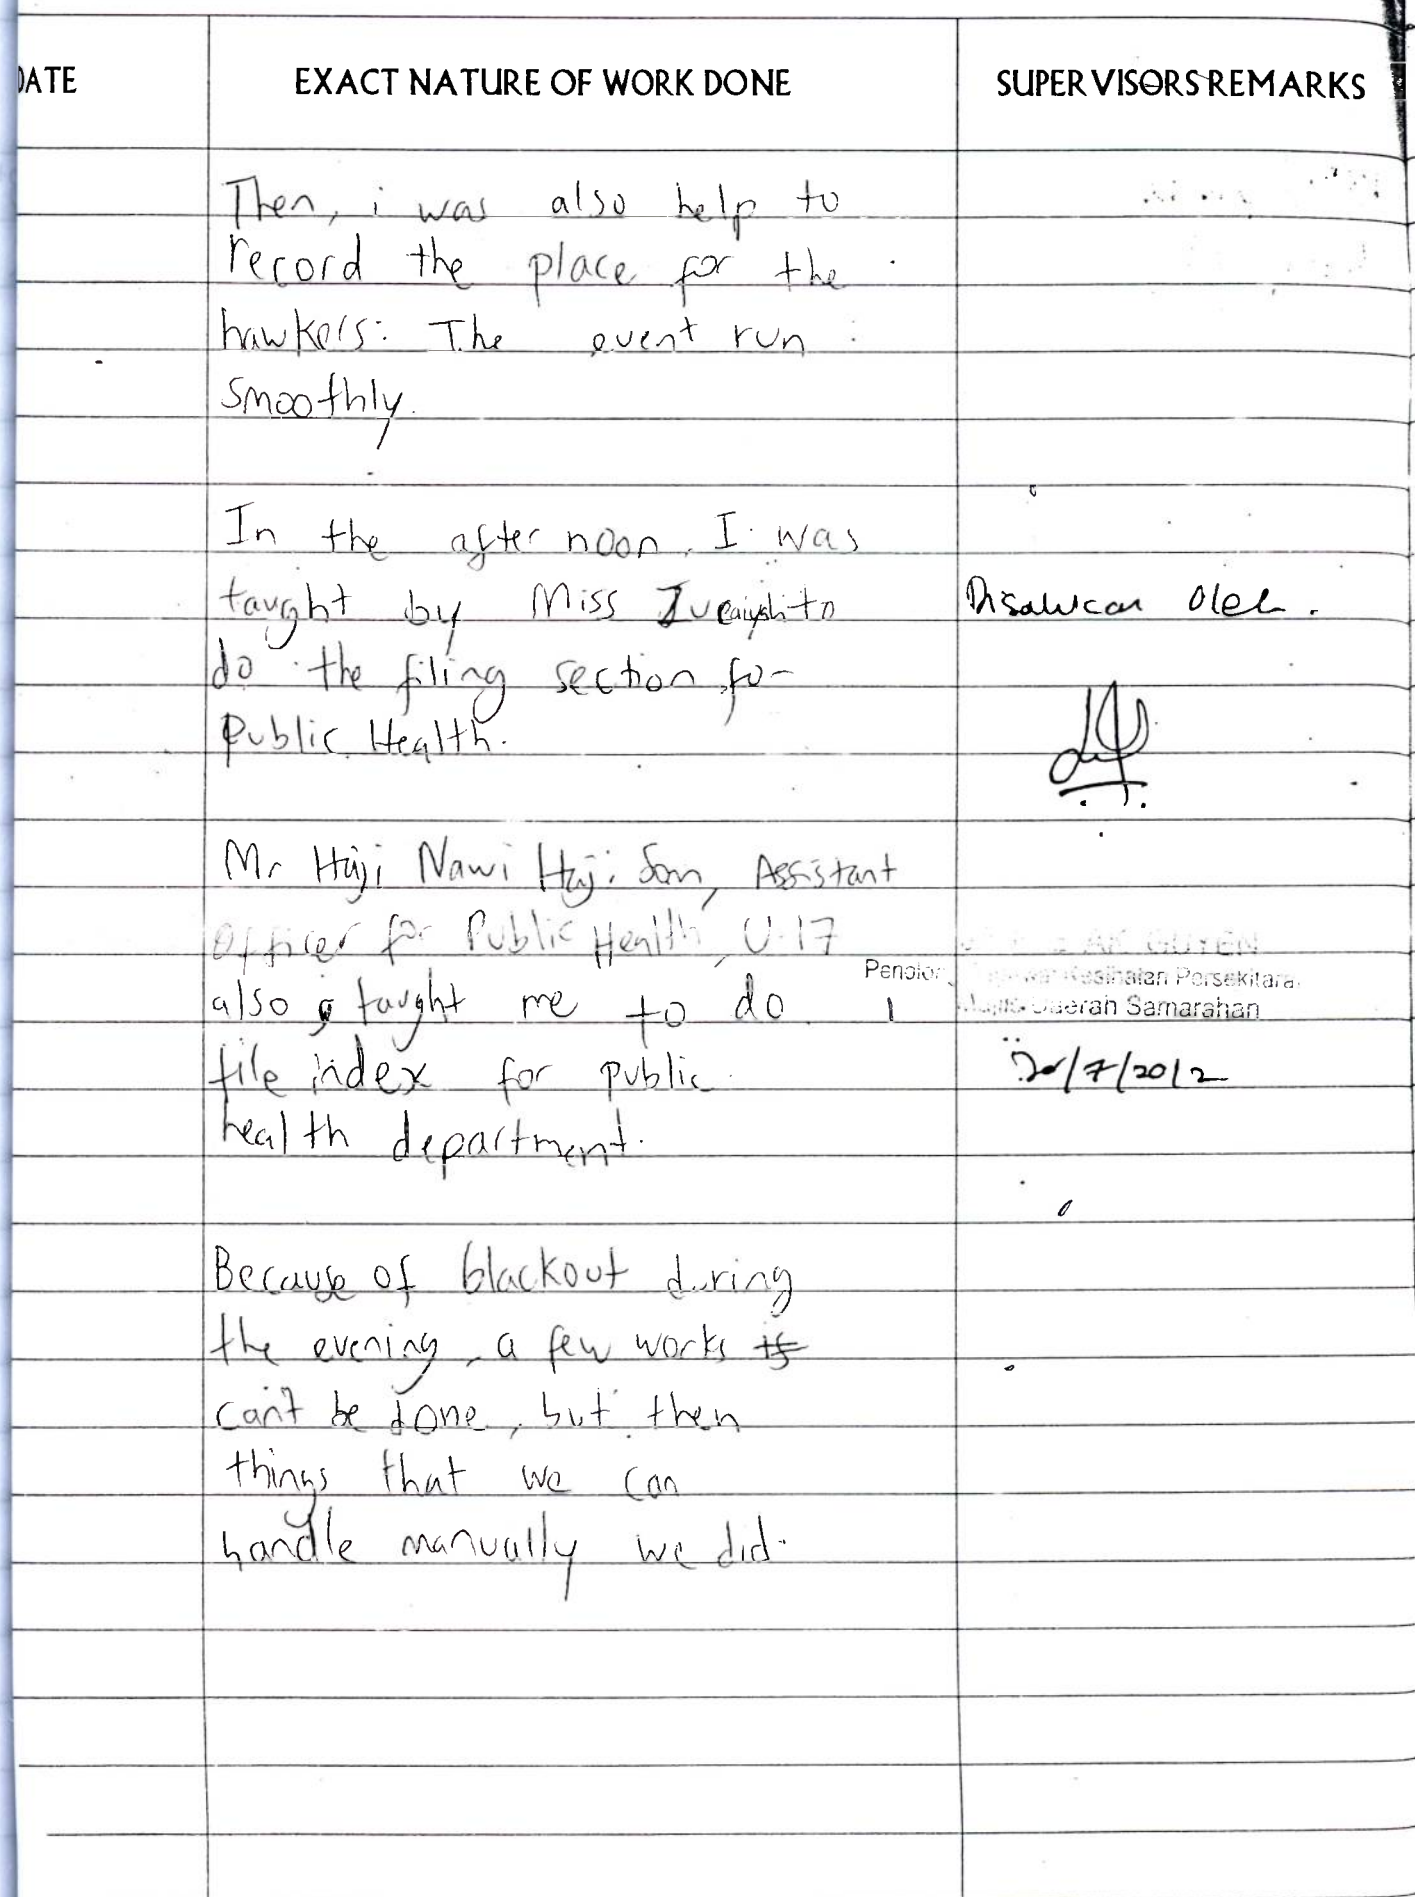 DATE EXACT NATURE OF WORK DONE SUPERVISORS REMARKS
Then, i was also help to
record the place for the
hawkers. The event run
smoothly.
In the after noon, I was
taught by Miss to
do the filing section for
Public Health.
Disahkan Oleh.
Mr Haji Nawi Haji Som, Assistant
Officer for Public Health, U-17
also taught me to do
file index for public
health department.
AK GUYEN
Kesihatan Persekitara
Daerah Samarahan
/7/2012
Because of blackout during
the evening, a few works is
can't be done, but then
things that we can
handle manually we did.